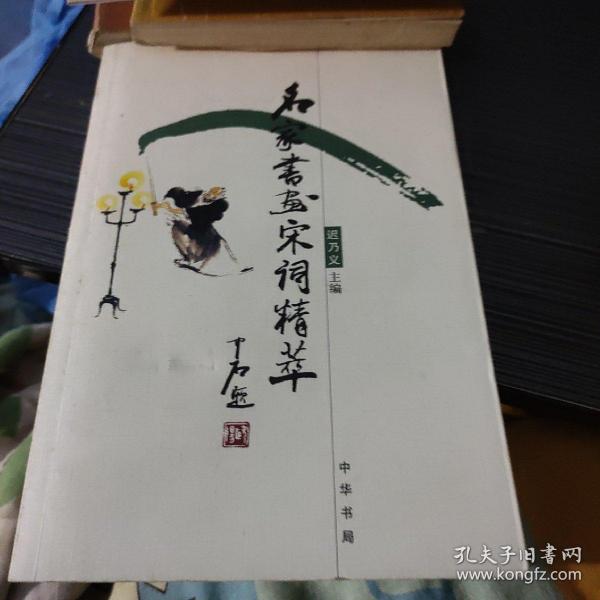 名家书画宋词精萃
迟乃义
主编
中石题
中华书局
孔夫子旧书网
www.kongfz.com